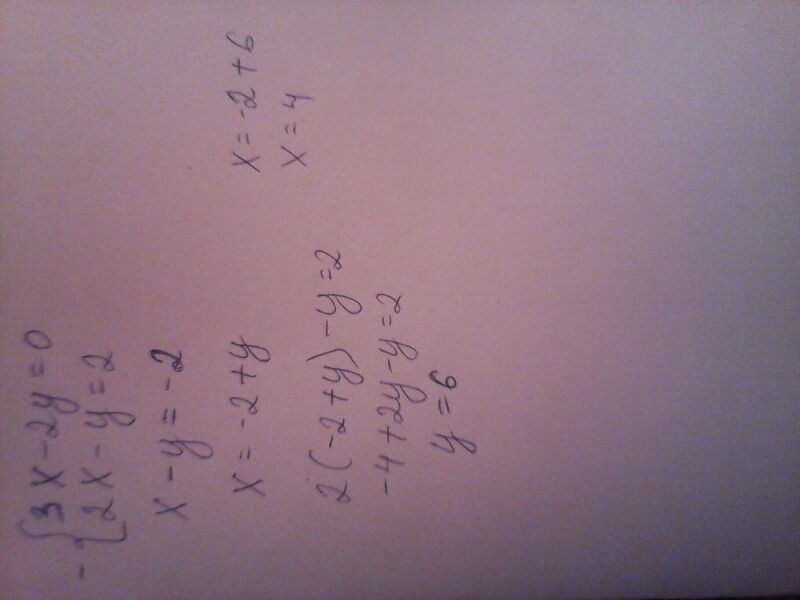 - { 3x-2y=0
2x-y=2
x-y=-2
x=-2+y
2(-2+y)-y=2
-4+2y-y=2
y=6
x=-2+6
x=4